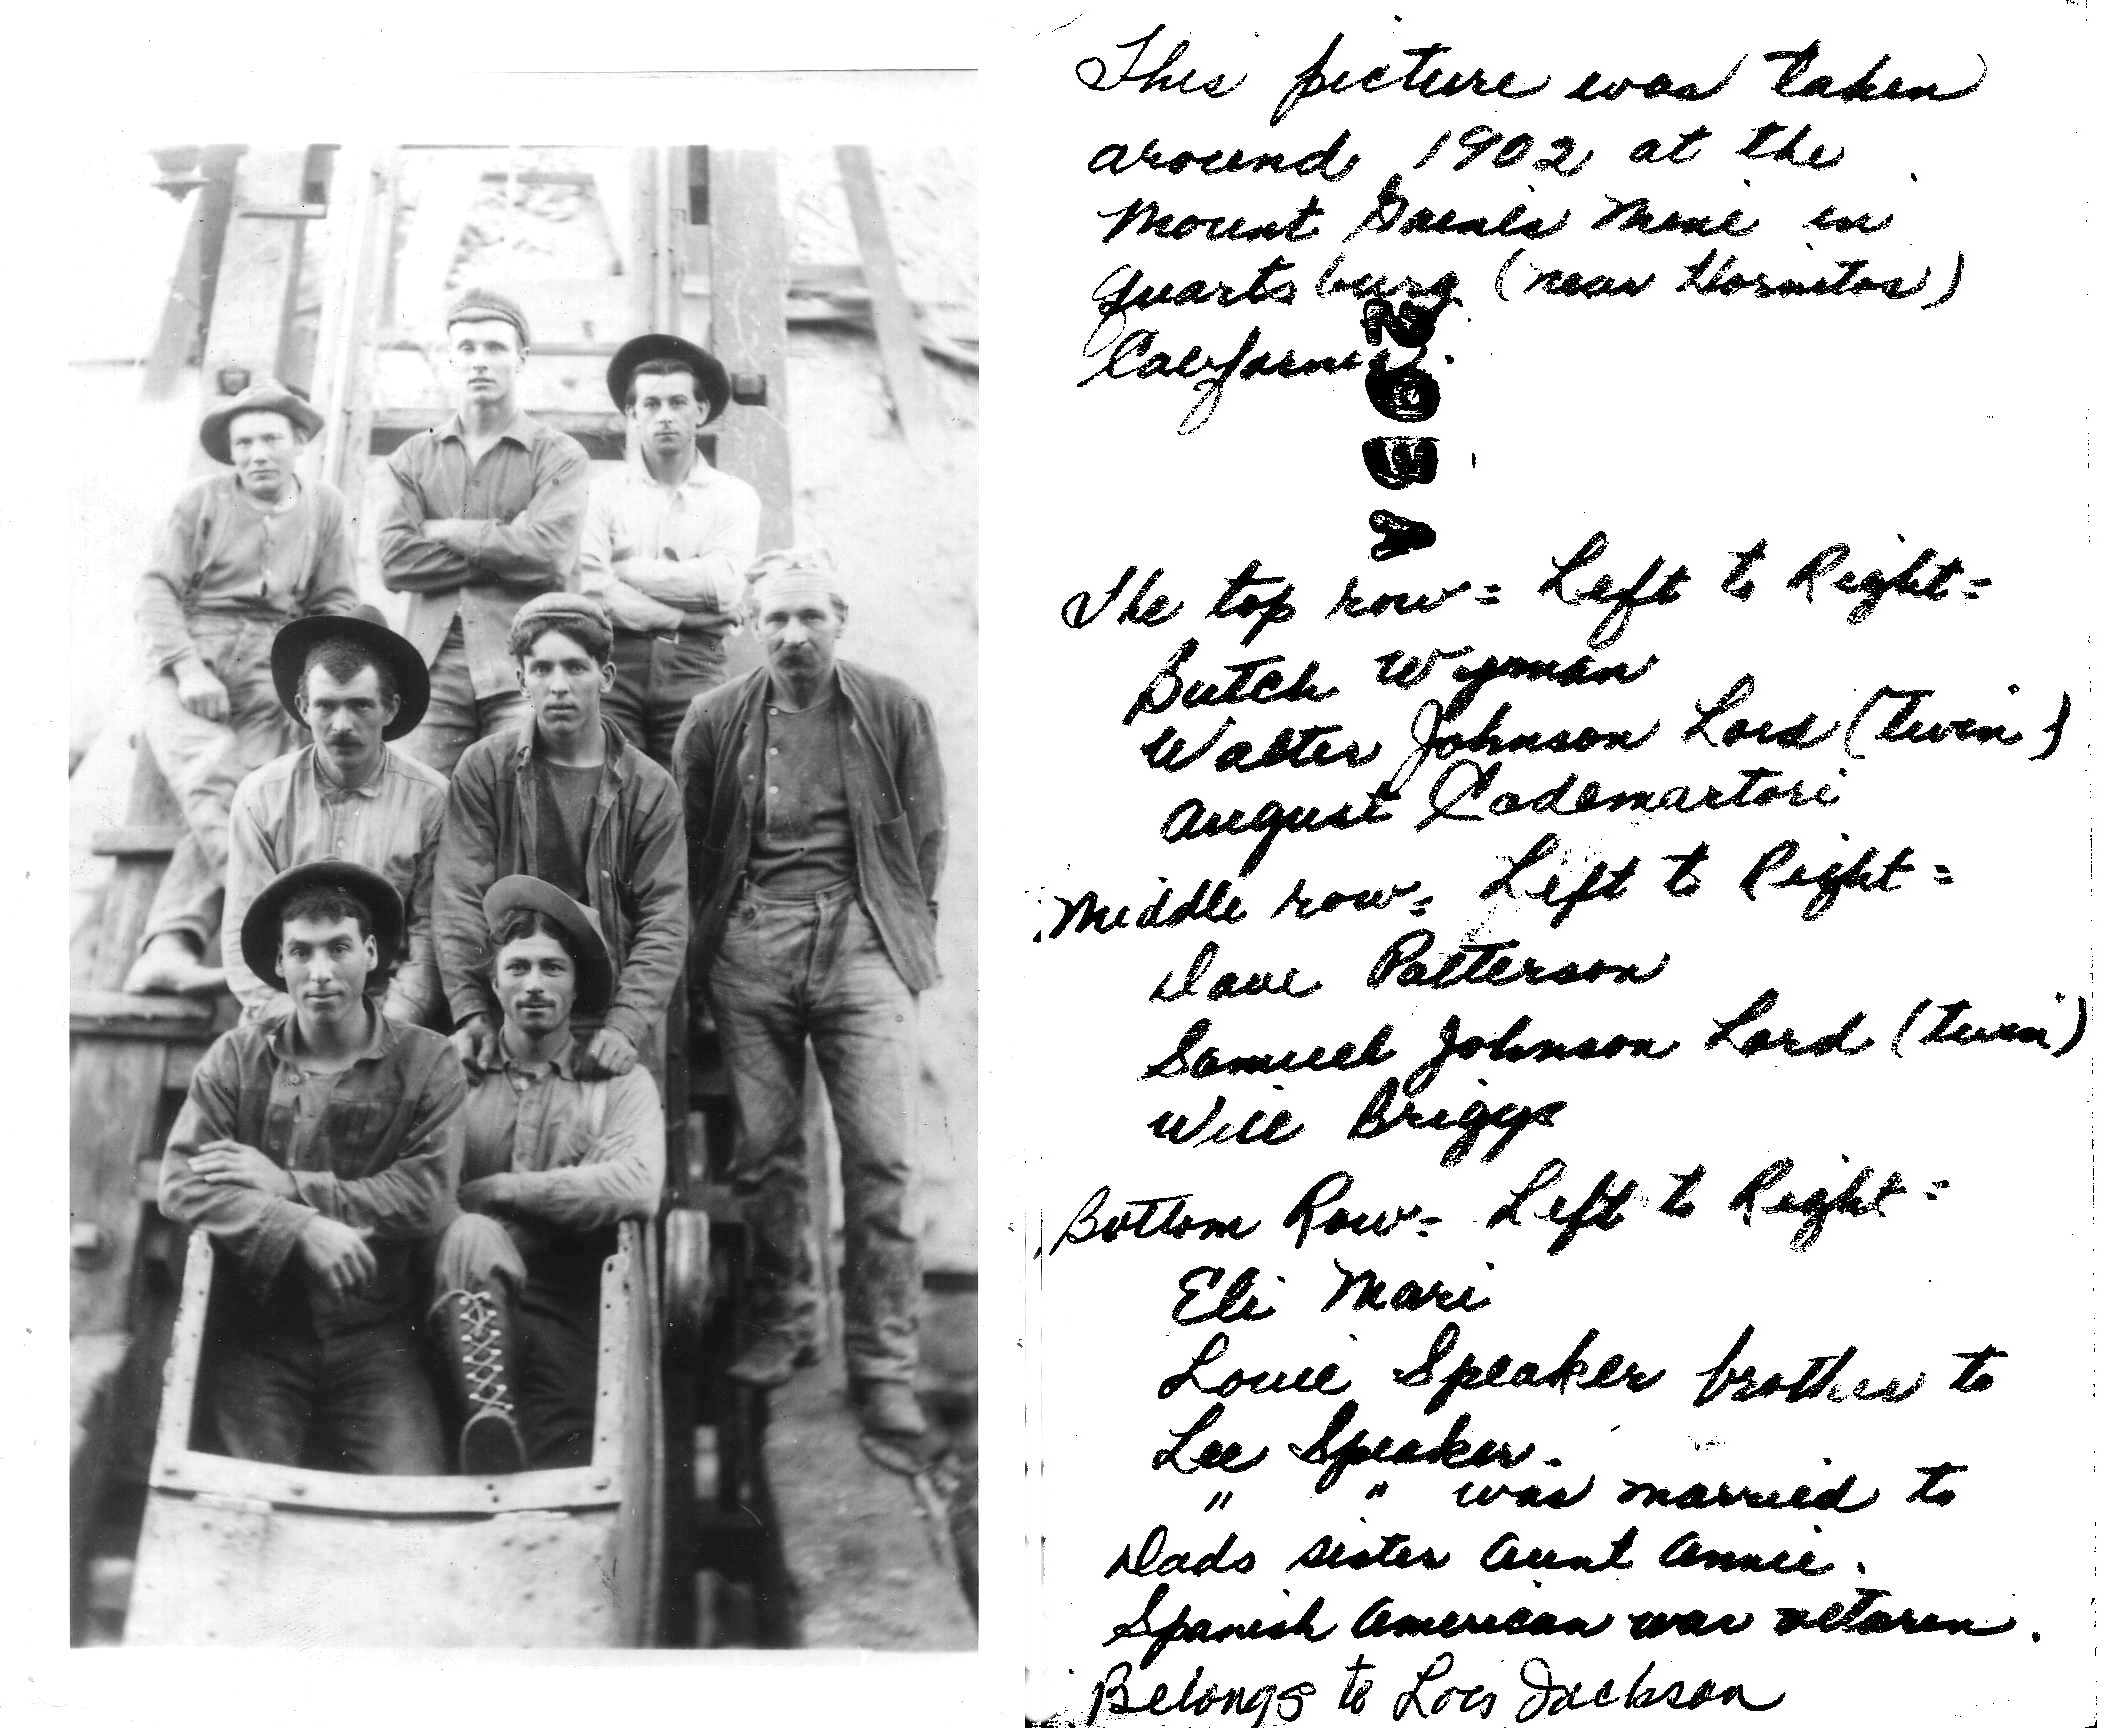 This picture was taken
around 1902 at the
Mount Gaines Mine in
Quartsburg (near Hornitos)
California.
The top row = Left to Right =
Butch Wyman
Walter Johnson Lord (twin)
August Cademartori
Middle row = Left to Right =
Dave Patterson
Samuel Johnson Lord (twin)
Will Briggs
Bottom Row = Left to Right =
Eli Mari
Louie Speaker brother to
Lee Speaker.
" " was married to
Dads sister Aunt Annie.
Spanish American war vetaren.
Belongs to Lois Jackson